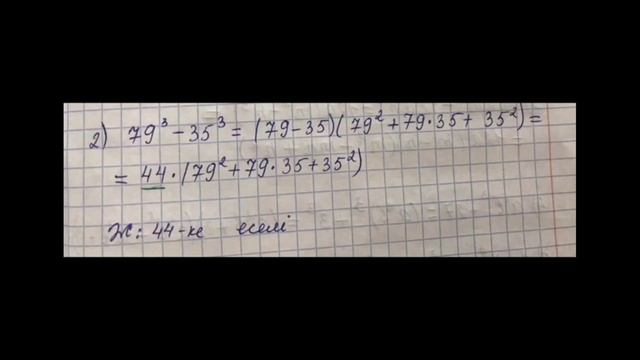 2) 79³ - 35³ = (79-35)(79² + 79·35 + 35²) =
= 44·(79² + 79·35 + 35²)
Ж: 44-ке еселі